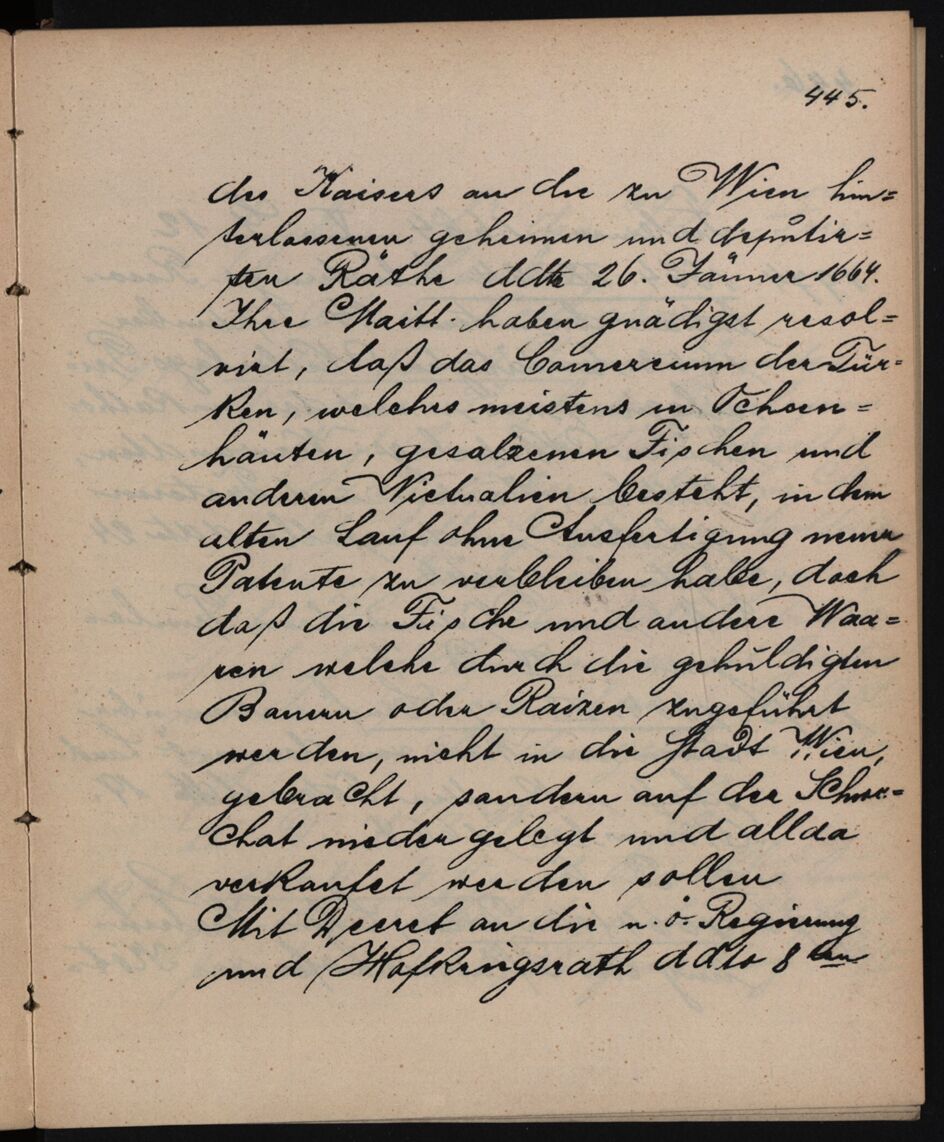 445.
des Kaisers an die zu Wien hin=
terlassenen geheimen und deputir=
ten Räthe ddto 26. Jänner 1664.
Ihre Maitt. haben gnädigst resol=
virt, daß das Comercium der Tür=
ken, welches meistens in Ochsen=
häuten, gesalzenen Fischen und
anderen Victualien besteht, in dem
alten Lauf ohne Ausfertigung neuer
Patente zu verbleiben habe, doch
daß die Fische und andere Waa=
ren welche durch die gehuldigten
Bauern oder Raizen zugeführt
werden, nicht in die Stadt Wien,
gebracht, sondern auf der Schwe=
chat niedergelegt und allda
verkaufet werden sollen
Mit Decret an die n. ö. Regierung
und Hofkriegsrath ddto 8ten